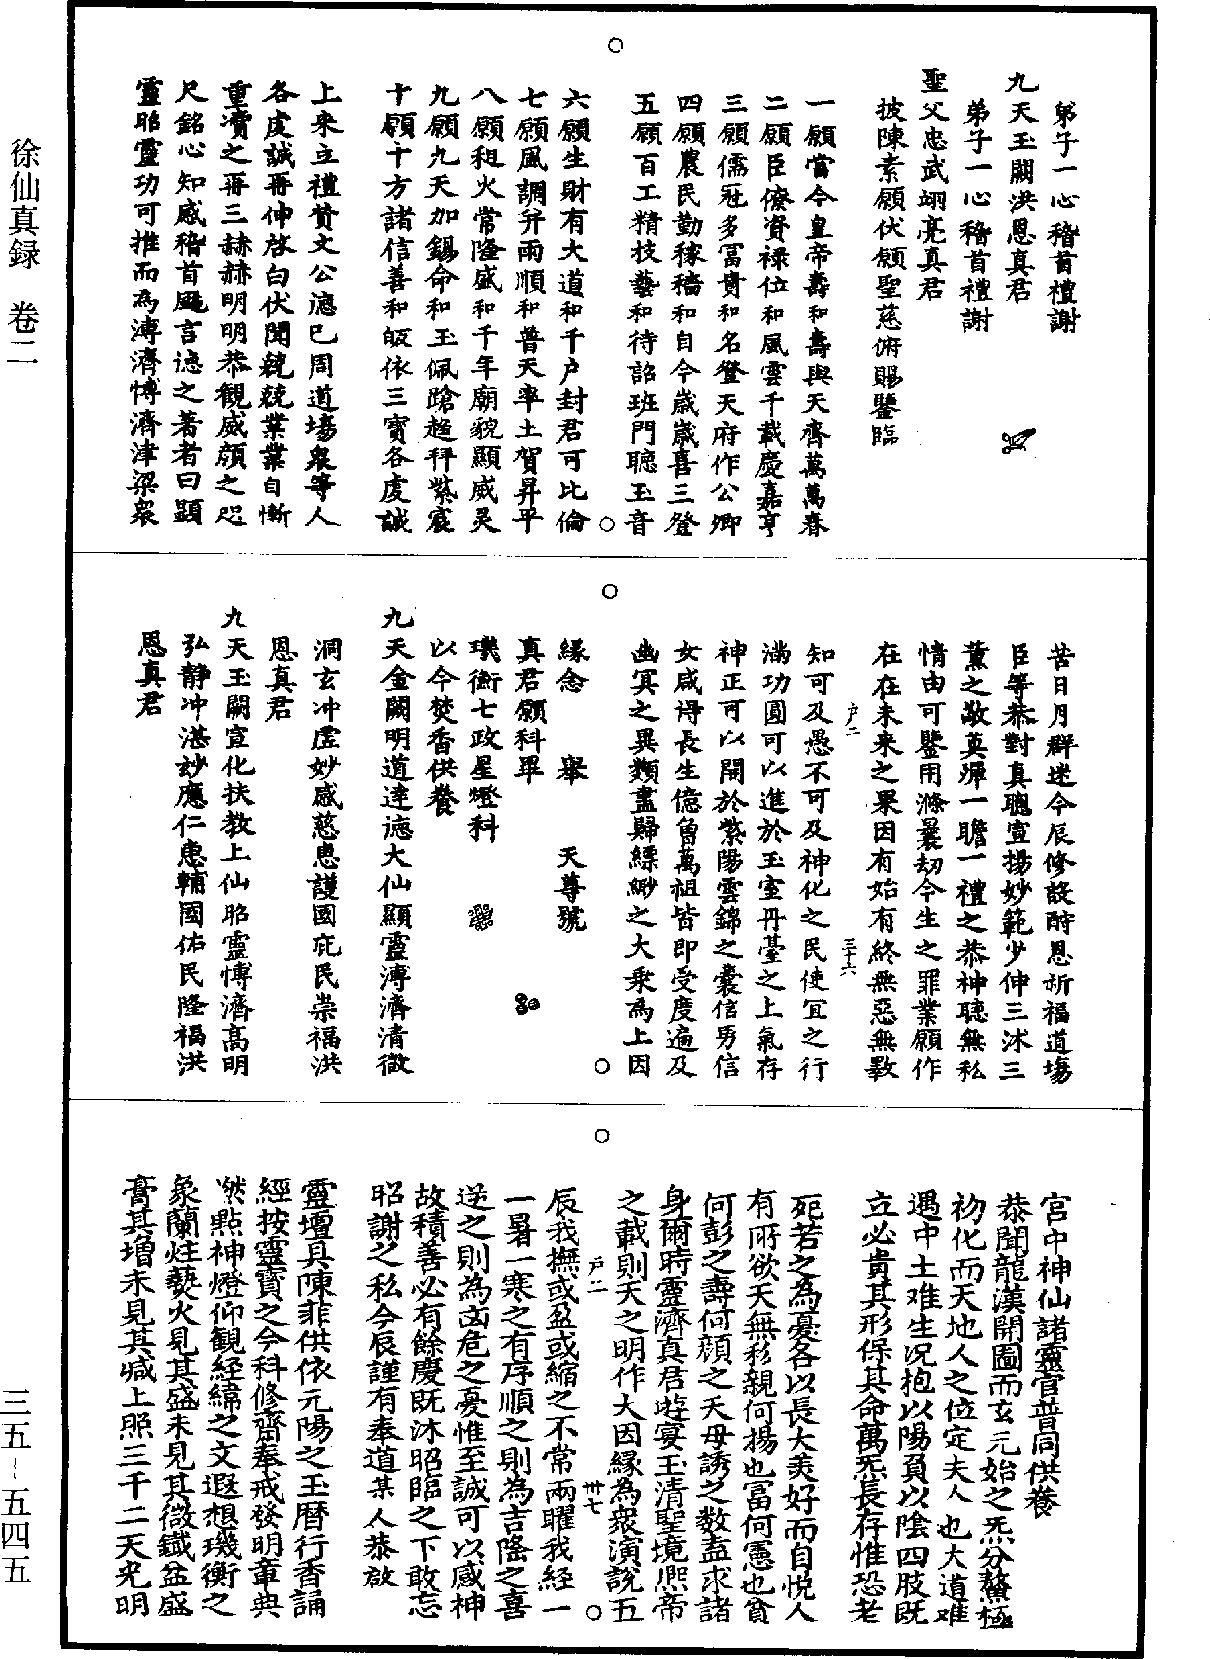 徐仙真録　卷二
弟子一心稽首禮謝
九天玉闕洪恩真君
弟子一心稽首禮謝
聖父忠武翊亮真君
披陳素願伏願聖慈俯賜鑒臨
一願當今皇帝壽和壽與天齊萬萬春
二願臣僚資祿位和風雲千載慶嘉亨
三願儒冠多冨貴和名登天府作公卿
四願農民勤稼穡和自今歲歲喜三登
五願百工精技藝和待詔班門聽玉音
六願生財有大道和千户封君可比倫
七願風調并雨順和普天率土賀昇平
八願租火常隆盛和千年廟貌顯威灵
九願九天加錫命和玉佩蹌趨拜紫宸
十願十方諸信善和皈依三寳各虔誠
上來立禮贊文公德已周道場衆等人
各虔誠再伸啓白伏聞兢兢業業自慚
重瀆之再三赫赫明明恭觀威顔之咫
尺銘心知感稽首颺言德之著者曰顕
靈昭靈功可推而為溥濟愽濟津梁衆
苦日月群迷今辰修設酧恩祈福道場
臣等恭對真聰宣揚妙範少伸三沐三
薰之敬奠殫一瞻一禮之恭神聽無私
情由可鑒用滌曩劫今生之罪業願作
在在未來之果因有始有終無惡無斁
户二
三十六
知可及愚不可及神化之民使冝之行
滿功圓可以進於玉室丹臺之上氣存
神正可以開於紫陽雲錦之囊信男信
女咸得長生億曾萬祖皆即受度遍及
幽冥之異類盡歸縹緲之大乘為上因
緣念　舉　天尊號
真君願科畢
璣衡七政星燈科
以今焚香供養
九天金闕明道達德大仙顯靈溥濟清微
洞玄冲虛妙感慈惠護國庇民崇福洪
恩真君
九天玉闕宣化扶教上仙昭靈愽濟高明
弘靜冲湛妙應仁惠輔國佑民隆福洪
恩真君
宮中神仙諸靈官普同供養
恭聞龍漢開圖而玄元始之炁分鰲極
初化而天地人之位定夫人也大道难
遇中土难生况抱以陽負以陰四肢既
立必貴其形保其命萬炁長存惟恐老
死若之為憂各以長大美好而自悦人
有所欲天無移親何揚也冨何憲也貧
何彭之壽何顔之夭毋誘之數盍求諸
身爾時靈濟真君遊宴玉清聖境熈帝
之載則天之明作大因緣為衆演說五
户二
卅七
辰我撫或盈或縮之不常兩曜我經一
一暑一寒之有序順之則為吉隆之喜
逆之則為凶危之憂惟至誠可以感神
故積善必有餘慶既沐昭臨之下敢忘
昭謝之私今辰謹有奉道某人恭啟
靈壇具陳菲供依元陽之玉曆行香誦
經按靈寳之今科修齋奉戒發明章典
燃點神燈仰観経緯之文遐想璣衡之
象蘭炷爇火見其盛未見其微鐡盆盛
膏其增未見其減上照三千二天光明
三五－五四五